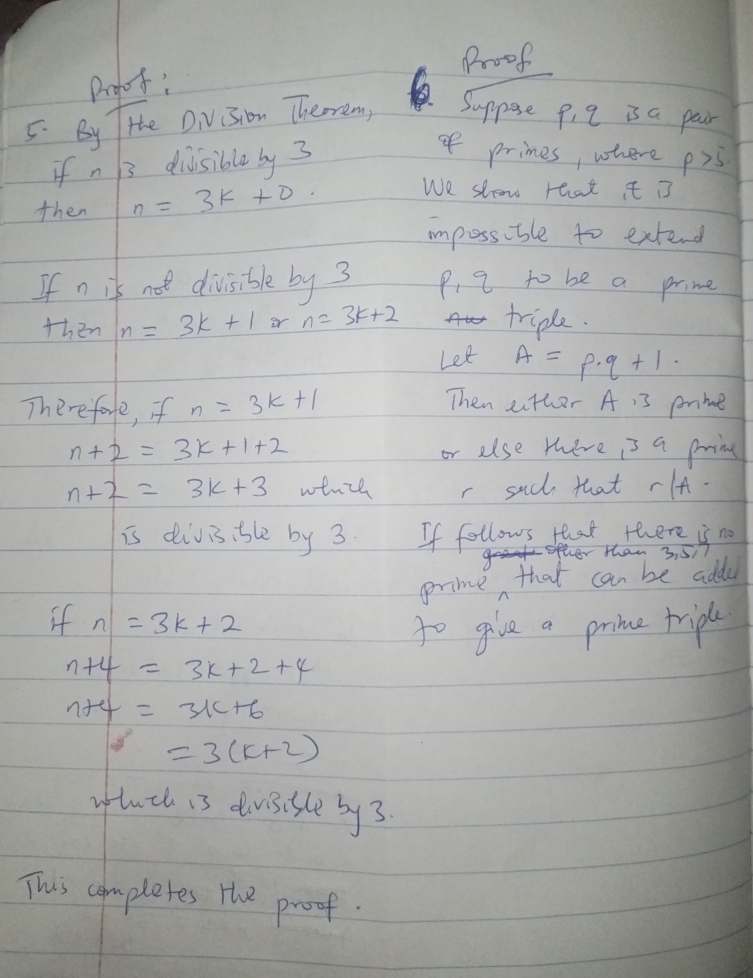 Proof:
5. By the Division Theorem,
if n is divisible by 3
then n = 3K + 0.
If n is not divisible by 3
then n = 3K + 1 or n = 3K+2
Therefore, if n = 3K+1
n+2 = 3K+1+2
n+2 = 3K+3 which
is divisible by 3.
if n = 3K+2
n+4 = 3K+2+4
n+4 = 3K+6
= 3(K+2)
which is divisible by 3.
This completes the proof.
Proof
6. Suppose p, q is a pair
of primes, where p>5.
We show that it is
impossible to extend
p, q to be a prime
triple.
Let A = p.q + 1.
Then either A is prime
or else there is a prime
r such that r/A.
If follows that there is no
other than 3,5,7
prime ^ that can be added
to give a prime triple.